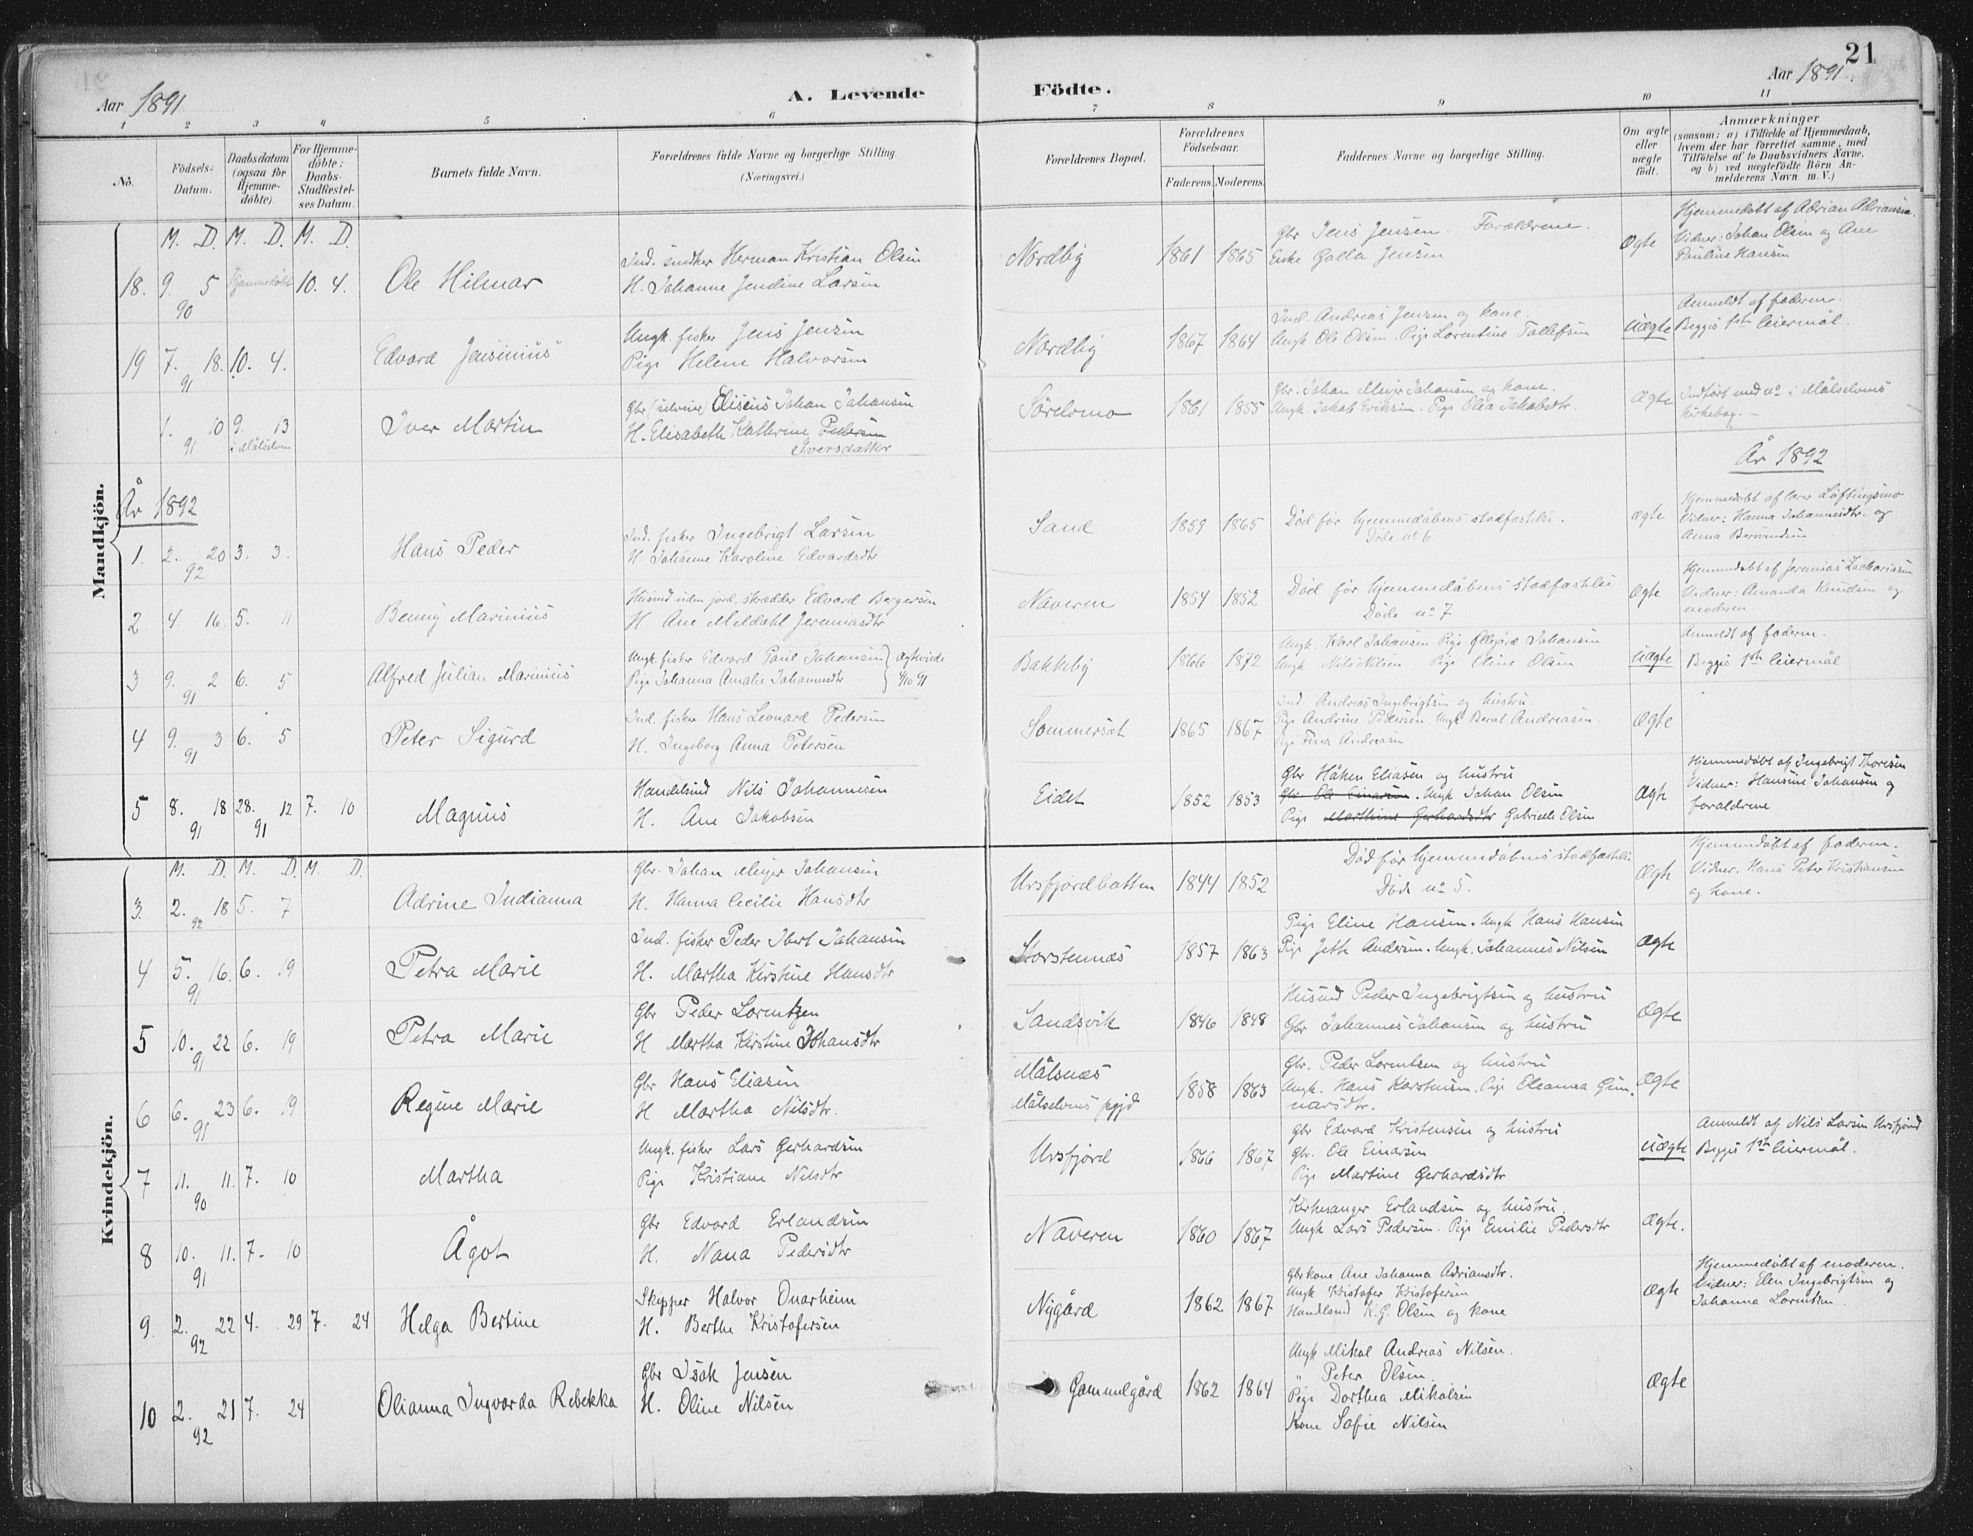 21
Aar 1891
A. Levende
Födte.
Aar 1891.
1 2 3 4 5 6 7 8 9 10 11
No.
Födsels-Datum.
Daabsdatum (ogsaa for Hjemme-döbte).
For Hjemme-döbte: Daabs-Stadfæstel-ses Datum.
Barnets fulde Navn.
Forældrenes fulde Navne og borgerlige Stilling.
(Næringsvei.)
Forældrenes Bopæl.
Forældrenes Födselsaar.
Faderens. Moderens.
Faddernes Navne og borgerlige Stilling.
Om ægte eller uægte födt.
Anmærkninger
(saasom: a) i Tilfælde af Hjemmedaab,
hvem der har forrettet samme, med
Tilföielse af to Daabsvidners Navne,
og b) ved uægtefödte Börn An-
melderens Navn m. V.)
Mandkjön.
M. D. M. D. M. D.
18. 9. 5 90 Hjemmedöbt 10. 4. Ole Hilmar
Ind. Herman Kristian Olsen
H. Johanne Jendine Larsen
Nordby 1861 1865
Gbr Jens Jensen. Forældrene.
Enke Golla Jensen
Ægte
Hjemmedøbt af Adrian Adriansen.
Vidner: Johan Olsen og Ane
Pauline Hansen
19 7. 18. 91 10. 4. Edvard Jensinius
Ungk. fisker Jens Jensen
Pige Helene Halvorsen
Nordby 1867 1864
Ind. Andreas Jensen og kone.
Ungk Ole Olsen. Pige Lorentine Tollefsen
Uægte
Anmeldt af faderen.
Begges 1ste leiermål.
1. 10 91 9. 13 i Målselven Iver Martin
Gbr (selveier) Eliseus Johan Johansen
H. Elisabeth Kathrine Pedersen
Iversdatter
Sörelvmo 1861 1855
Gbr. Johan Meyer Johansen og kone.
Ungk Jakob Eriksen. Pige Olea Jakobsdtr.
Ægte
Indført med no i Målselvens
Kirkebog. —
År 1892
År 1892
1. 2. 20 92 3. 3. Hans Peder
Ind. fisker Ingebrigt Larsen
H. Johanne Karoline Edvardsdtr
Sand 1859 1865
Död før hjemmedåbens stadfæstelse.
Döde no 6.
Ægte
Hjemmedøbt af lærer Løftingsmo
Vidner: Hanna Johannesdtr. og
Anna
2 4 16. 5. 11 Benny Marinius
Husmd uden jord, skrædder Edvard Borgersen
H. Ane Meldahl Jeremiasdtr
Naveren 1854 1852
Död før hjemmedåbens stadfæstelse
Döde no 7
Ægte
Hjemmedøbt af Jeremias Zachariasen
Vidner: Amanda Knudsen og
moderen.
3 9. 2 91 6. 5 Alfred Julian Marinius
Ungk. fisker Edvard Paul Johansen } Ægteviede
Pige Johanna Amalie Johannesdtr 4/10 91
Bakkeby 1866 1872
Ungk. Karl Johansen Pige Ollegård Johansen
Ungk Nils Nilsen Pige Eline Olsen
Uægte
Anmeldt af faderen.
Begges 1ste leiermål
4 9. 3 91 6. 5 Peter Sigurd
Ind. fisker Hans Leonard Pedersen
H. Ingeborg Anna Petersen
Sommerset 1865 1867
Ind. Andreas Ingebrigtsen og hustru.
Pige Andrine Pedersen. Ungk Bernt Andreasen.
Pige Fina Andreasen
Ægte
5 8. 18 91 28. 12 91 7. 10 Magnus
Handelsmd Nils Johannesen
H. Ane Jakobsen
Eidet 1852 1853
Gbr Håken Eliasen og hustru
Gbr. Ole Einarsen. Ungk Johan Olsen
Pige Marthine Gerhardsdtr Gabrielle Olsen
Ægte
Hjemmedøbt af Ingebrigt Thoresen
Vidner: Hansine Johansen og
forældrene
Kvindekjön.
M. D. M. D. M. D.
3. 2. 18 92 5. 7 Adrine Indianna
Gbr. Johan Meyer Johansen
H. Hanna Cecilie Hansdtr
Ursfjordbotten 1844 1852
Död før hjemmedåbens stadfæstelse
Döde no 5.
Ægte
Hjemmedøbt af faderen.
Vidner: Hans Peter Kristiansen
og kone.
4 5. 16. 91 6. 19 Petra Marie
Ind. fisker Peder Ibert Johansen
H. Martha Kirstine Hansdtr
Storstennæs 1857 1863
Pige Eline Hansen. Ungk Hans Hansen
Pige Jette Andersen. Ungk. Johannes Nilsen
Ægte
5 10. 22 91 6. 19 Petra Marie
Gbr Peder Lorentzen
H Martha Kirstine Johansdtr
Sandsvik 1846 1848
Husmd Peder Ingebrigtsen og hustru
Gbr Johannes Johansen og hustru
Ægte
6 6. 23 91 6. 19 Regine Marie
Gbr Hans Eliasen
H Martha Nilsdtr.
Målsnæs
Målselvens pgjd 1858 1863
Gbr. Peder Lorentsen og hustru
Ungk. Hans Karstensen. Pige Oleanna Gun-
narsdtr.
Ægte
7 11. 11. 90 7. 10 Martha
Ungk. fisker Lars Gerhardsen
Pige Kristiane Nilsdtr
Ursfjord 1866 1867
Gbr Edvard Kristensen og hustru
Gbr. Ole Einarsen
Pige Martine Gerhardsdtr
Uægte
Anmeldt af Nils Larsen Ursfjord
Begges 1ste leiermål.
8 10. 11. 91 7. 10 Ågot
Gbr Edvard Erlandsen
H. Nana Pedersdtr
Naveren 1860 1867
Kirkesanger Erlandsen og hustru.
Ungk Lars Pedersen. Pige Emilie Pedersdtr
Ægte.
9. 2. 22 92 4. 29 7. 24 Helga Bertine
Skipper Halvor Onarheim
H. Berthe Kristofersen
Nygård 1862 1867
Gbrkone Ane Johanna Adriansdtr.
Ungk Kristofer Kristofersen
Handlsmd K. G. Olsen og kone
Ægte
Hjemmedøbt af moderen.
Vidner: Elen Ingebrigtsen og
Johanna Lorentsen
10 2. 21 92 7. 24 Olianna Ingvarda Rebekka
Gbr Isak Jensen
H. Oline Nilsen
Gammelgård 1862 1864
Ungk Mikal Andreas Nilsen.
" Peter Olsen.
Pige Dorthea Mikalsen
Kone Sofie Nilsen
Ægte